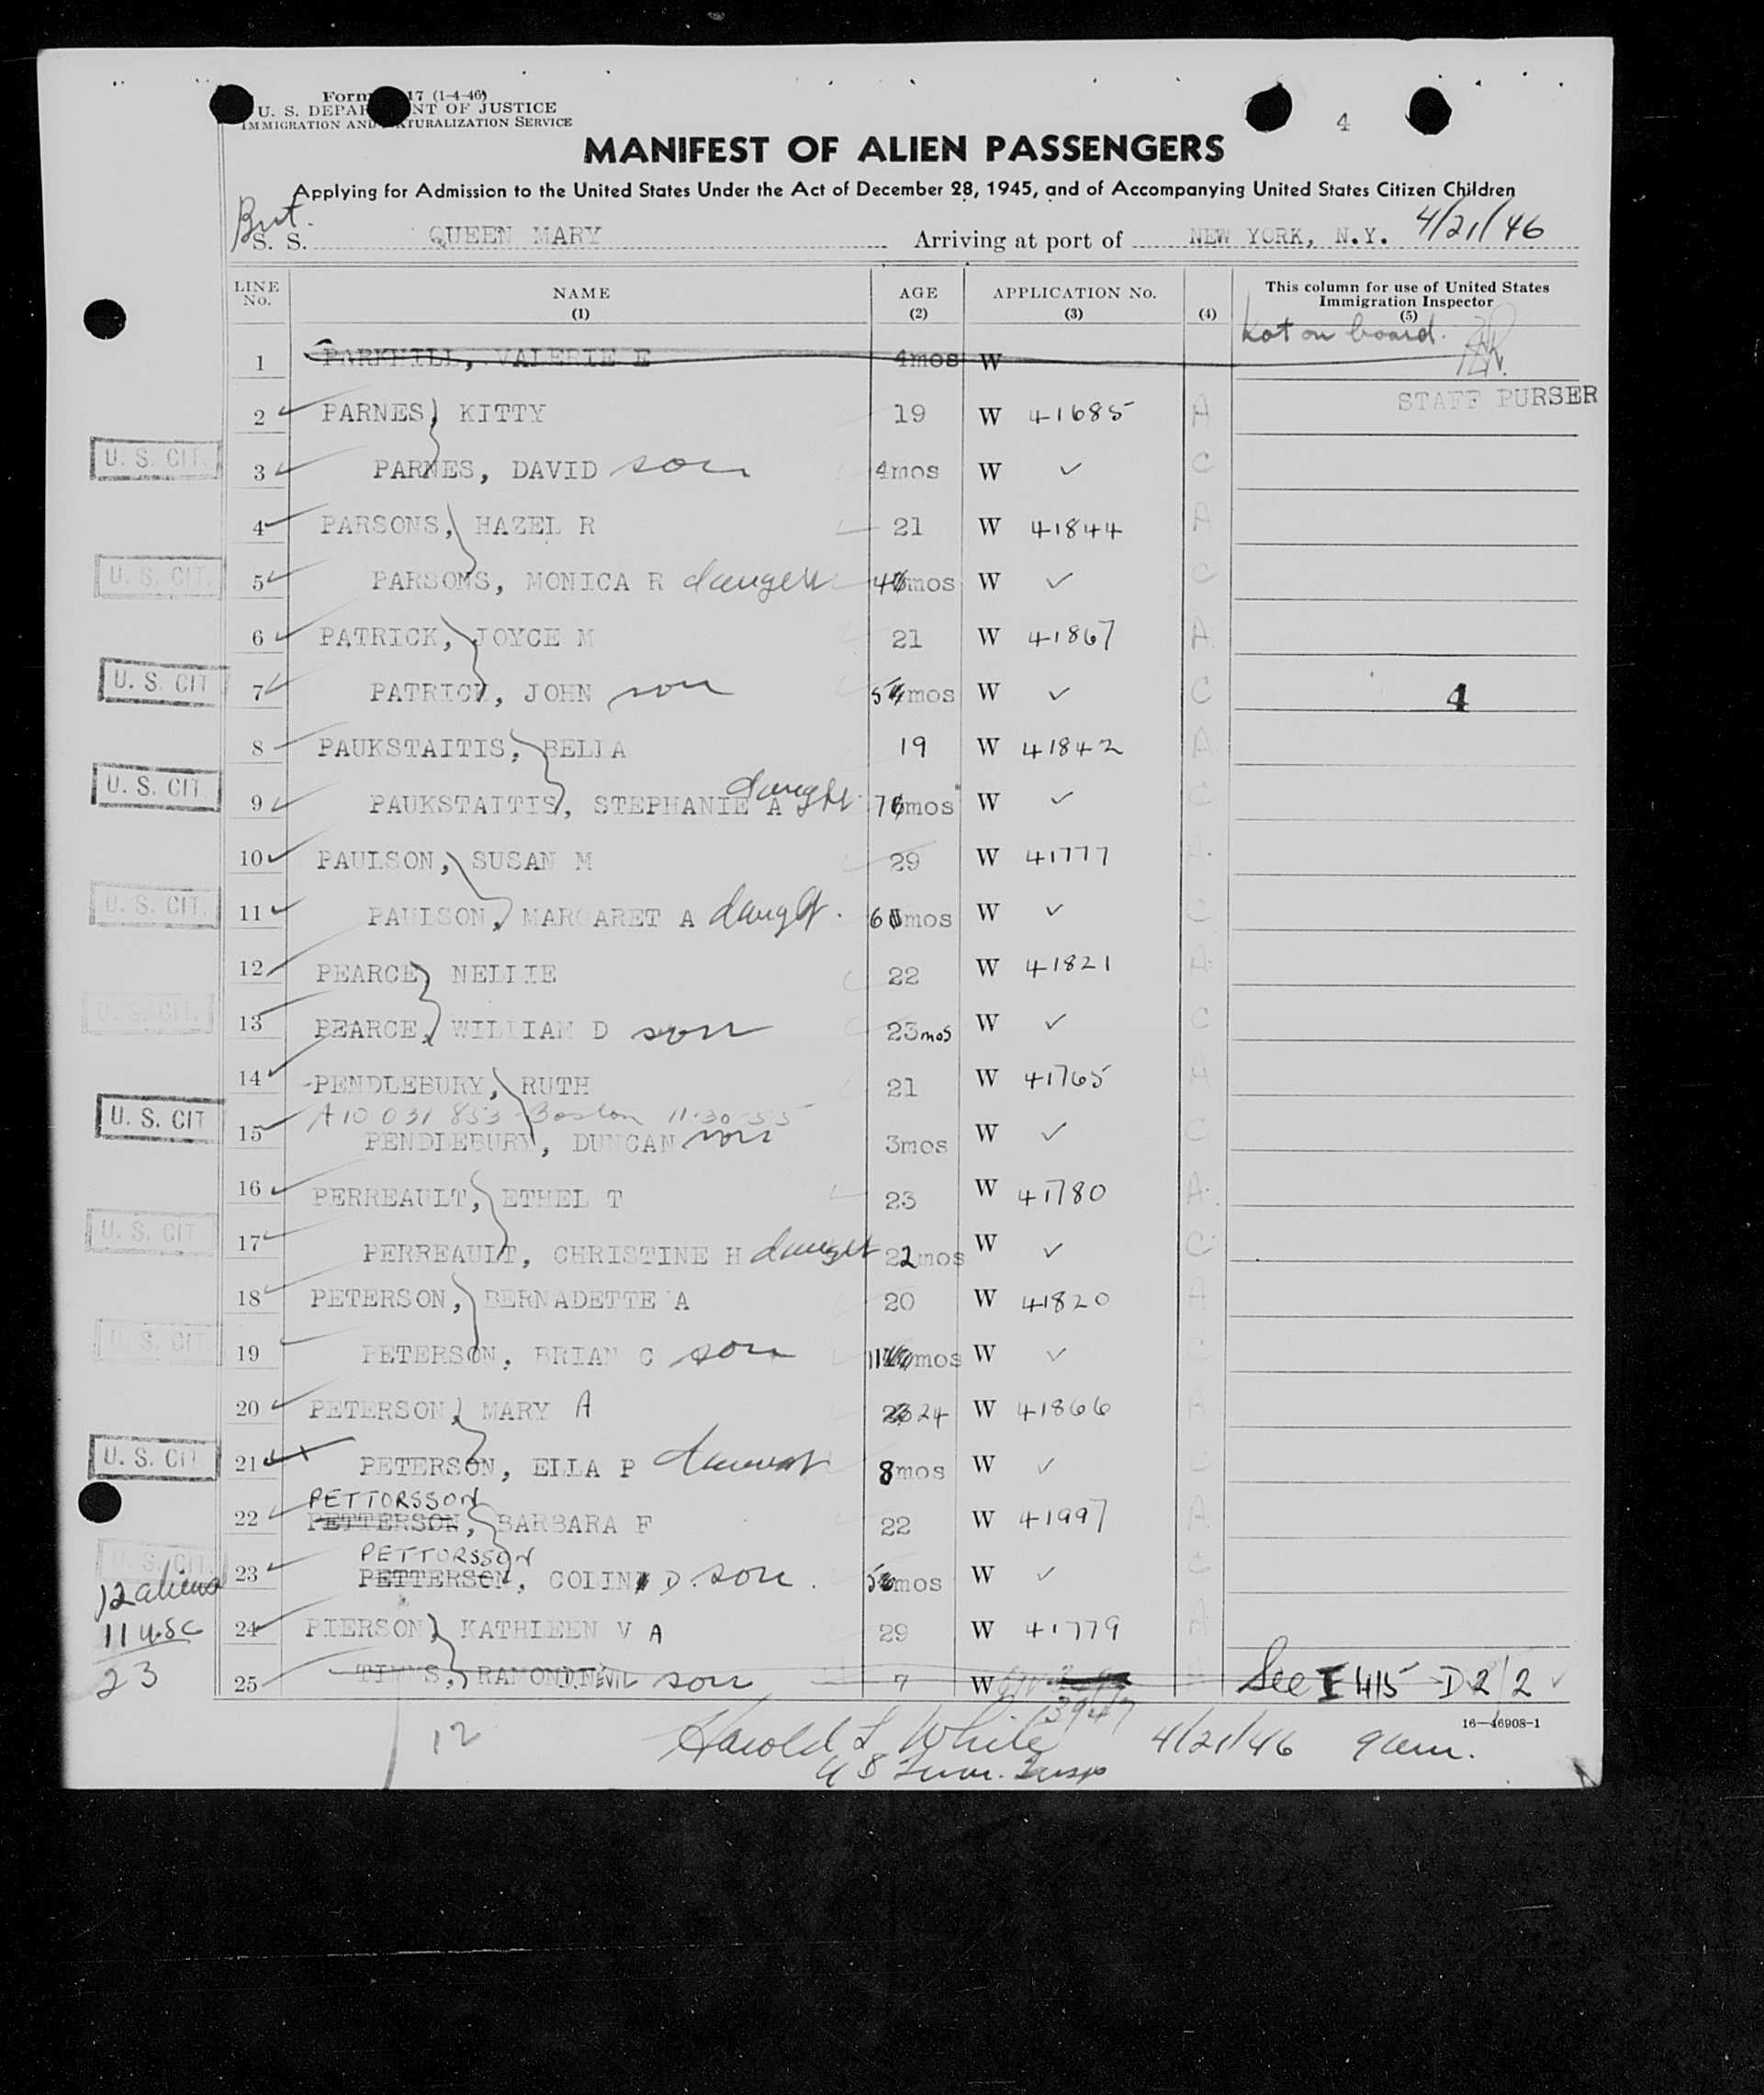 Form 17 (1-4-46)
U. S. DEPAR NT OF JUSTICE
IMMIGRATION AND NATURALIZATION SERVICE
4
MANIFEST OF ALIEN PASSENGERS
Applying for Admission to the United States Under the Act of December 28, 1945, and of Accompanying United States Citizen Children
Brit.
S. S. QUEEN MARY Arriving at port of NEW YORK, N.Y. 4/21/46
LINE No. NAME (1) AGE (2) APPLICATION No. (3) (4) This column for use of United States Immigration Inspector (5)
1 PARKHILL, VALERIE E 4mos W Not on board.
STAFF PURSER
2 PARNES, KITTY 19 W 41685 A
U. S. CIT. 3 PARNES, DAVID son 4mos W ✓ C
4 PARSONS, HAZEL R 21 W 41844 A
U. S. CIT. 5 PARSONS, MONICA R 4mos W ✓ C
6 PATRICK, JOYCE M 21 W 41867 A
U. S. CIT 7 PATRICK, JOHN son 5mos W ✓ C 4
8 PAUKSTAITIS, BELLA 19 W 41842 A
U. S. CIT. 9 PAUKSTAITIS, STEPHANIE A daught 7mos W ✓ C
10 PAULSON, SUSAN M 29 W 41777 A
U. S. CIT. 11 PAULSON, MARGARET A daught. 6mos W ✓ C
12 PEARCE, NELLIE 22 W 41821 A
U. S. CIT. 13 PEARCE, WILLIAM D son 23mos W ✓ C
14 PENDLEBURY, RUTH 21 W 41765 A
A10 031 853 Boston 11-30-55
U. S. CIT 15 PENDLEBURY, DUNCAN son 3mos W ✓ C
16 PERREAULT, ETHEL T 23 W 41780 A
U. S. CIT 17 PERREAULT, CHRISTINE H daught 22mos W ✓ C
18 PETERSON, BERNADETTE A 20 W 41820 A
U. S. CIT 19 PETERSON, BRIAN C son 11mos W ✓ C
20 PETERSON, MARY A 23 24 W 41866 A
U. S. CIT 21 PETERSON, ELLA P 8mos W ✓ C
PETTORSSON
22 PETTERSON, BARBARA F 22 W 41997 A
PETTORSSON
U. S. CIT. 23 PETTERSON, COLIN D. son. 5mos W ✓ C
12 aliens
24 PIERSON, KATHLEEN V A 29 W 41779 A
11 USC
25 TIMMS, RAMOND NEVIL son 7 W See I 415 D2/2
23
16—46908-1
12 Harold L White 4/21/46 9 am.
U S Imm. Insp